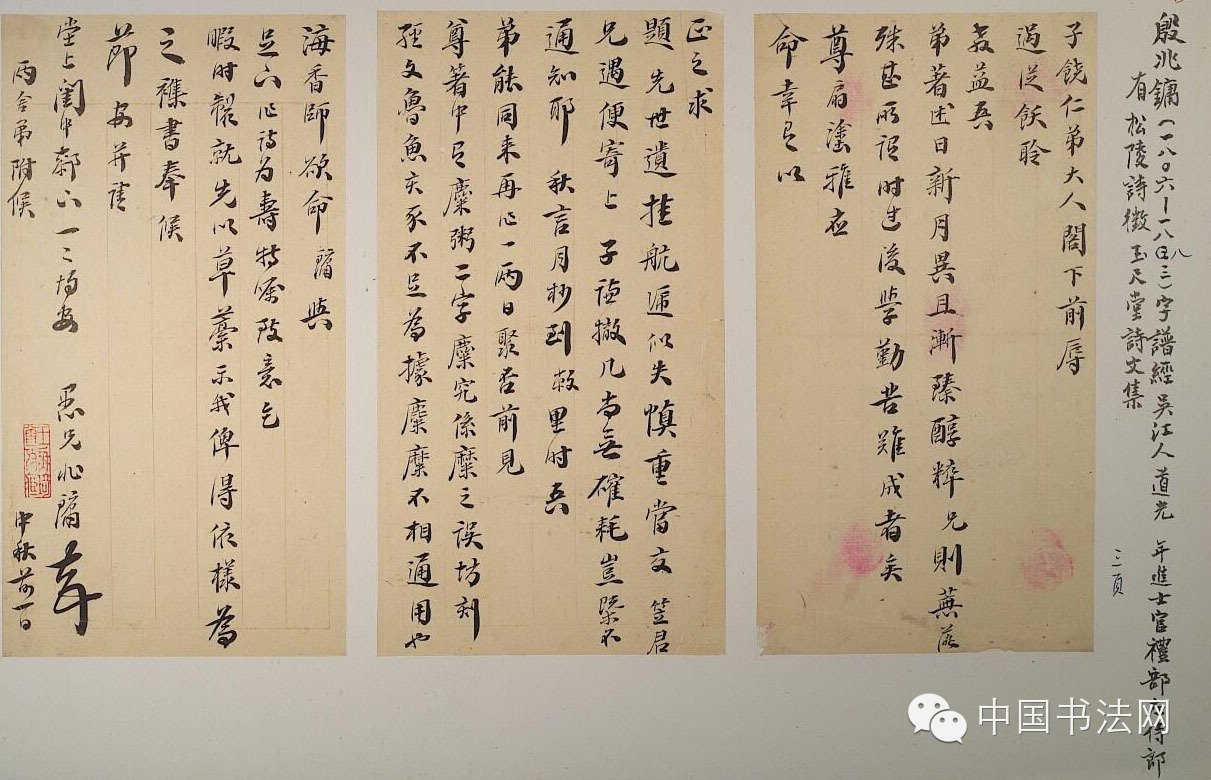 殷兆鏞（一八〇六—一八八三）字譜經吳江人道光　年進士官禮部　侍郎
有松陵詩徵玉尺堂詩文集
三頁
子饒仁弟大人閣下前辱
過從飫聆
教益吾
弟著述日新月異且漸臻醇粹兄則蕪
殊甚所謂時過後學勤苦難成者矣
尊扇塗雅應
命幸已以
正之求
題先世遺挂航遞似失慎重當交笠君
兄遇便寄上子謙撤几尚無確耗豈絕不
通知耶　秋言月杪到敝里時吾
弟能同來再作一兩日聚否前見
尊著中有糜粥二字糜究係糜之誤坊刻
經文魯魚亥豕不足為據糜糜不相通用也
海香師欲命鏞與
足下作詩為壽特屬致意乞
暇時製就先以草藁示我俾得依樣為
之襍書奉候
節安并請
堂上閫中郝下一二均安　愚兄兆鏞
兩舍弟附候　中秋前一日
中国书法网